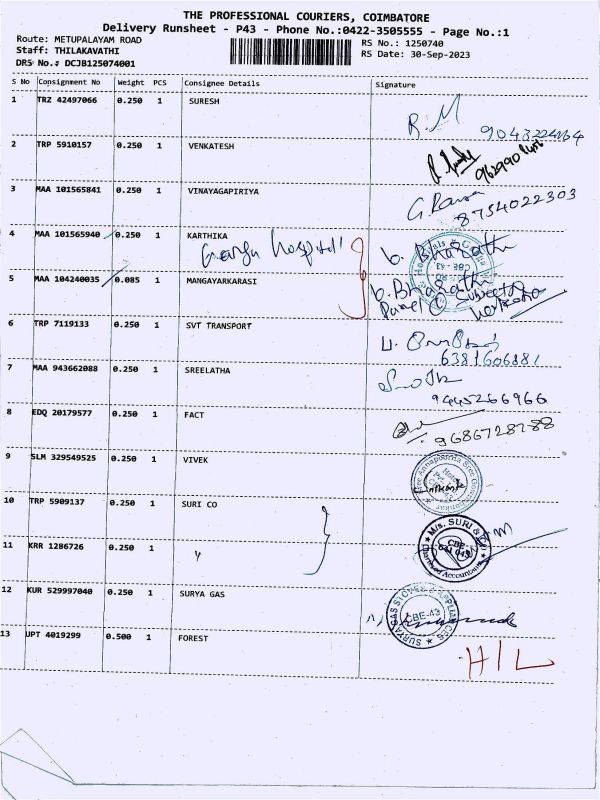 THE PROFESSIONAL COURIERS, COIMBATORE
Delivery Runsheet - P43 - Phone No.:0422-3505555 - Page No.:1
Route: METUPALAYAM ROAD
RS No.: 1250740
Staff: THILAKAVATHI
RS Date: 30-Sep-2023
DRS No.: DCJB125074001
S No Consignment No Weight PCS Consignee Details Signature
1 TRZ 42497066 0.250 1 SURESH
R.M
2 TRP 5910157 0.250 1 VENKATESH
3 MAA 101565841 0.250 1 VINAYAGAPIRIYA
8754022303
4 MAA 101565940 0.250 1 KARTHIKA
Ganga hospital
b. Bharathi
5 MAA 104240035 0.085 1 MANGAYARKARASI
b. Bharathi
6 TRP 7119133 0.250 1 SVT TRANSPORT
6381606881
7 MAA 943662088 0.250 1 SREELATHA
9445266966
8 EDQ 20179577 0.250 1 FACT
9686728788
9 SLM 329549525 0.250 1 VIVEK
10 TRP 5909137 0.250 1 SURI CO
M/s. SURI & Co
Chartered Accountants
11 KRR 1286726 0.250 1 "
12 KUR 529997040 0.250 1 SURYA GAS
SURYA GAS STOVES & APPLIANCES
CBE-43
13 UPT 4019299 0.500 1 FOREST
HIL